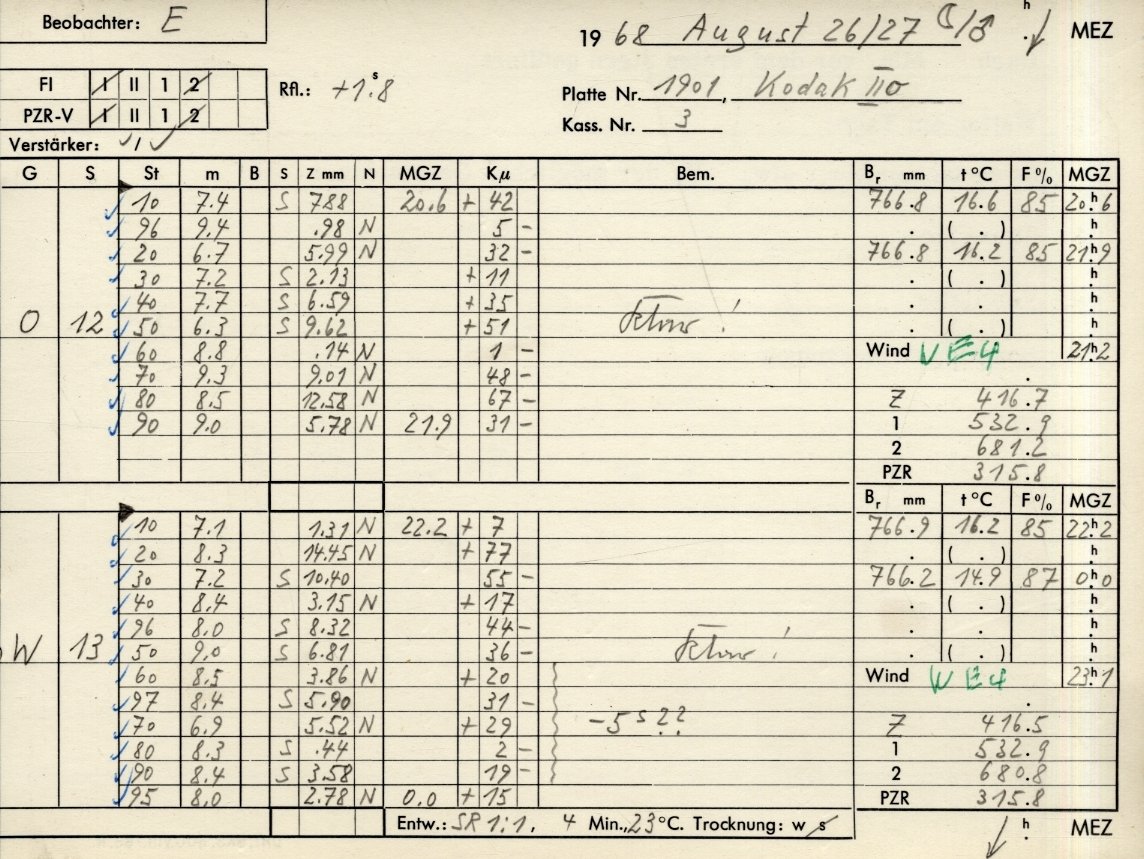 Beobachter: E
19 68 August 26/27 ☾/♂ h MEZ
FI I II 1 2
PZR-V I II 1 2
Rfl.: +1.s8
Platte Nr. 1901, Kodak IIo
Kass. Nr. 3
Verstärker: √ / √
G S St m B S Z mm N MGZ Kμ Bem. Br mm t °C F % MGZ
10 7.4 S 7.88 20.6 + 42 766.8 16.6 85 20.h6
96 9.4 .98 N 5 - . ( . ) h
20 6.7 5.99 N 32 - 766.8 16.2 85 21h9
30 7.2 S 2.13 + 11 . ( . ) h
40 7.7 S 6.59 + 35 . . h
O 12 50 6.3 S 9.62 + 51 ! . ( . ) h
60 8.8 .14 N 1 - Wind V E4 21h2
70 9.3 9.01 N 48 - .
80 8.5 12.58 N 67 - Z 416.7
90 9.0 5.78 N 21.9 31 - 1 532.9
2 681.2
PZR 315.8
Br mm t °C F % MGZ
10 7.1 1.31 N 22.2 + 7 766.9 16.2 85 22h2
20 8.3 14.45 N + 77 . ( . ) h
30 7.2 S 10.40 55 - 766.2 14.9 87 0h0
40 8.4 3.15 N + 17 . ( . ) h
96 8.0 S 8.32 44 - . . h
W 13 50 9.0 S 6.81 36 - ! . ( . ) h
60 8.5 3.86 N + 20 Wind W E4 23h1
97 8.4 S 5.90 31 - .
70 6.9 5.52 N + 29 -5 s ?? Z 416.5
80 8.3 S .44 2 - 1 532.9
90 8.4 S 3.58 19 - 2 680.8
95 8.0 2.78 N 0.0 + 15 PZR 315.8
Entw.: SR 1:1, 4 Min., 23 °C. Trocknung: w s h MEZ